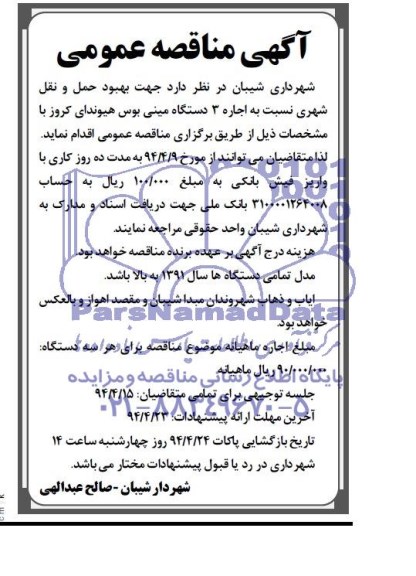 آگهی مناقصه عمومی
شهرداری شیبان در نظر دارد جهت بهبود حمل و نقل
شهری نسبت به اجاره ۳ دستگاه مینی بوس هیوندای کروز با
مشخصات ذیل از طریق برگزاری مناقصه عمومی اقدام نماید.
لذا متقاضیان می توانند از مورخ ۹۴/۴/۹ به مدت ده روز کاری با
واریز فیش بانکی به مبلغ ۱۰۰/۰۰۰ ریال به حساب
۳۱۰۰۰۰۱۲۶۴۰۰۸ بانک ملی جهت دریافت اسناد و مدارک به
شهرداری شیبان واحد حقوقی مراجعه نمایند.
هزینه درج آگهی بر عهده برنده مناقصه خواهد بود
مدل تمامی دستگاه ها سال ۱۳۹۱ به بالا باشد.
ایاب و ذهاب شهروندان مبدا شیبان و مقصد اهواز و بالعکس
ParsNamadData
خواهد بود.
مبلغ اجاره ماهیانه موضوع مناقصه برای هر سه دستگاه:
۹۰/۰۰۰/۰۰۰ ریال ماهیانه
پایگاه اطلاع رسانی مناقصه و مزایده
جلسه توجیهی برای تمامی متقاضیان: ۹۴/۴/۱۵
۰۲۱-۸۸۳۴۹۶۷۰-۵
آخرین مهلت ارائه پیشنهادات: ۹۴/۴/۲۳
تاریخ بازگشایی پاکات ۹۴/۴/۲۴ روز چهارشنبه ساعت ۱۴
شهرداری در رد یا قبول پیشنهادات مختار می باشد.
شهردار شیبان -صالح عبدالهی